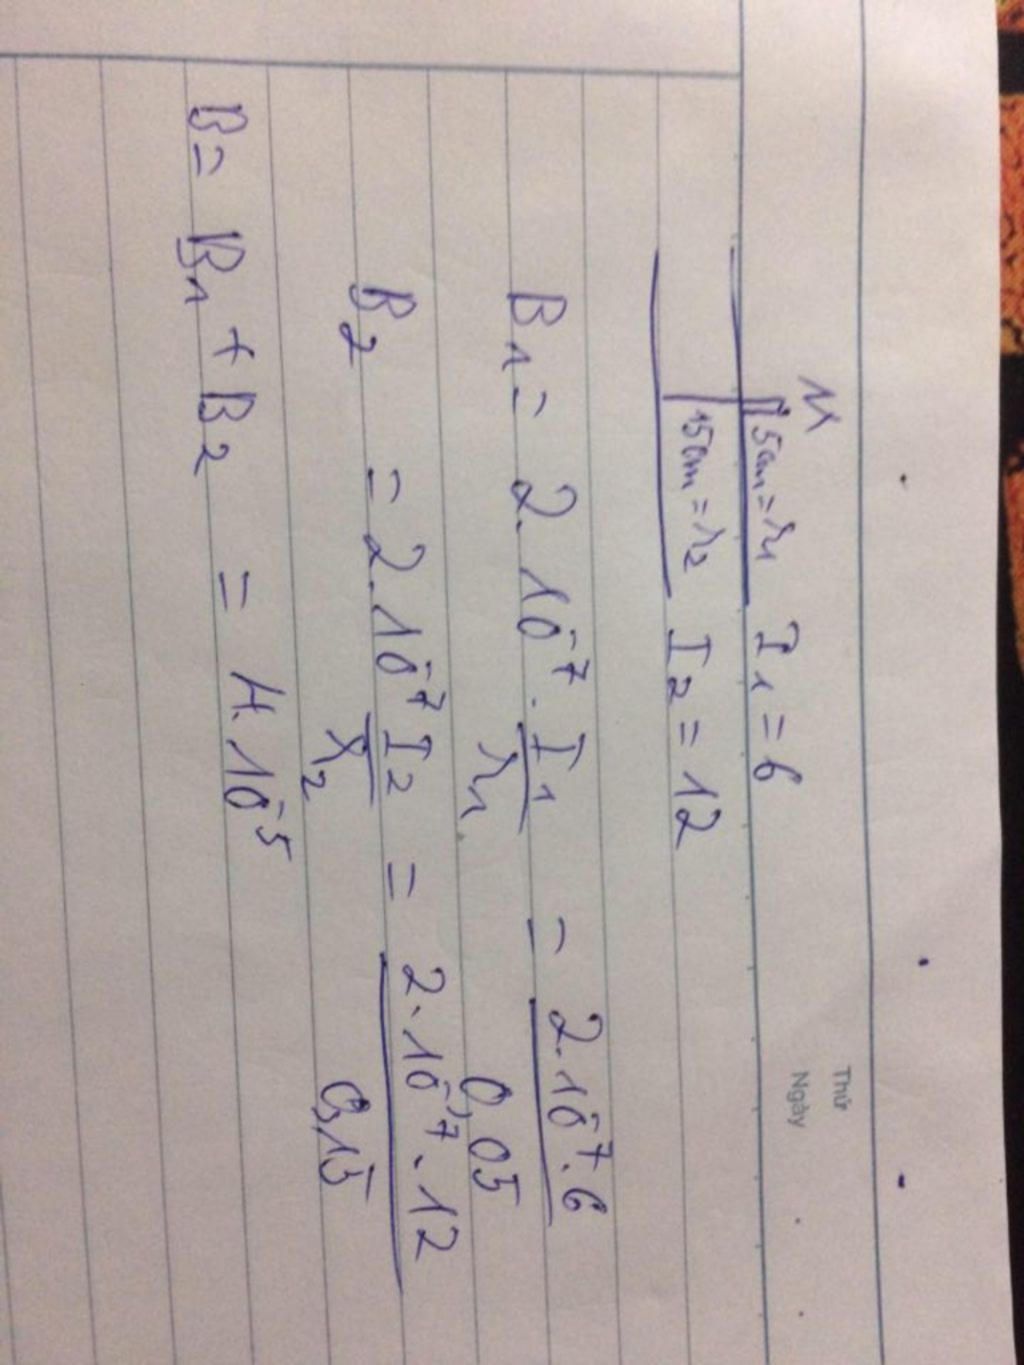 Thứ
Ngày
M
5cm = r₁ I₁ = 6
15cm = r₂ I₂ = 12
B₁ = 2.10⁻⁷. I₁/r₁ = 2.10⁻⁷.6/0,05
B₂ = 2.10⁻⁷ I₂/r₂ = 2.10⁻⁷.12/0,15
B = B₁ + B₂ = 4.10⁻⁵